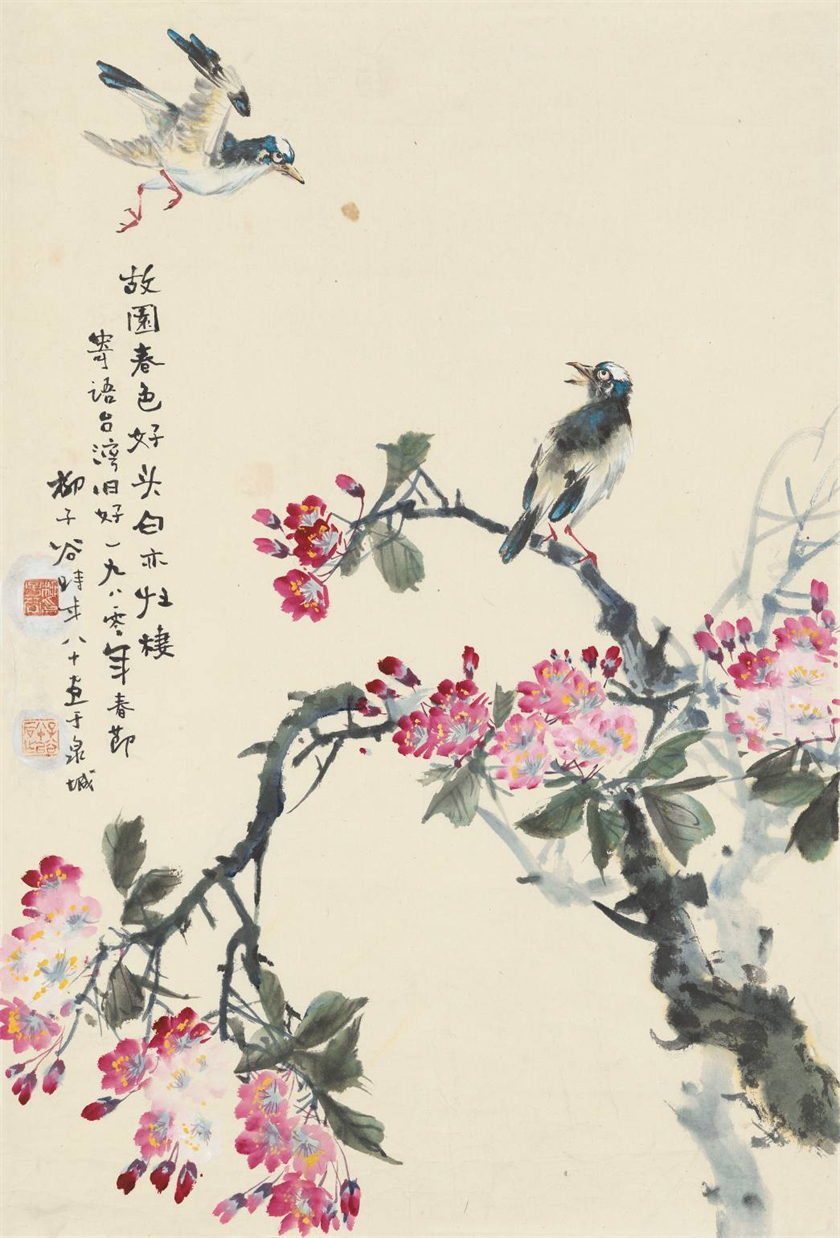 故園春色好头白亦归棲
寄语台湾旧好一九八零年春节
柳子谷时年八十画于泉城